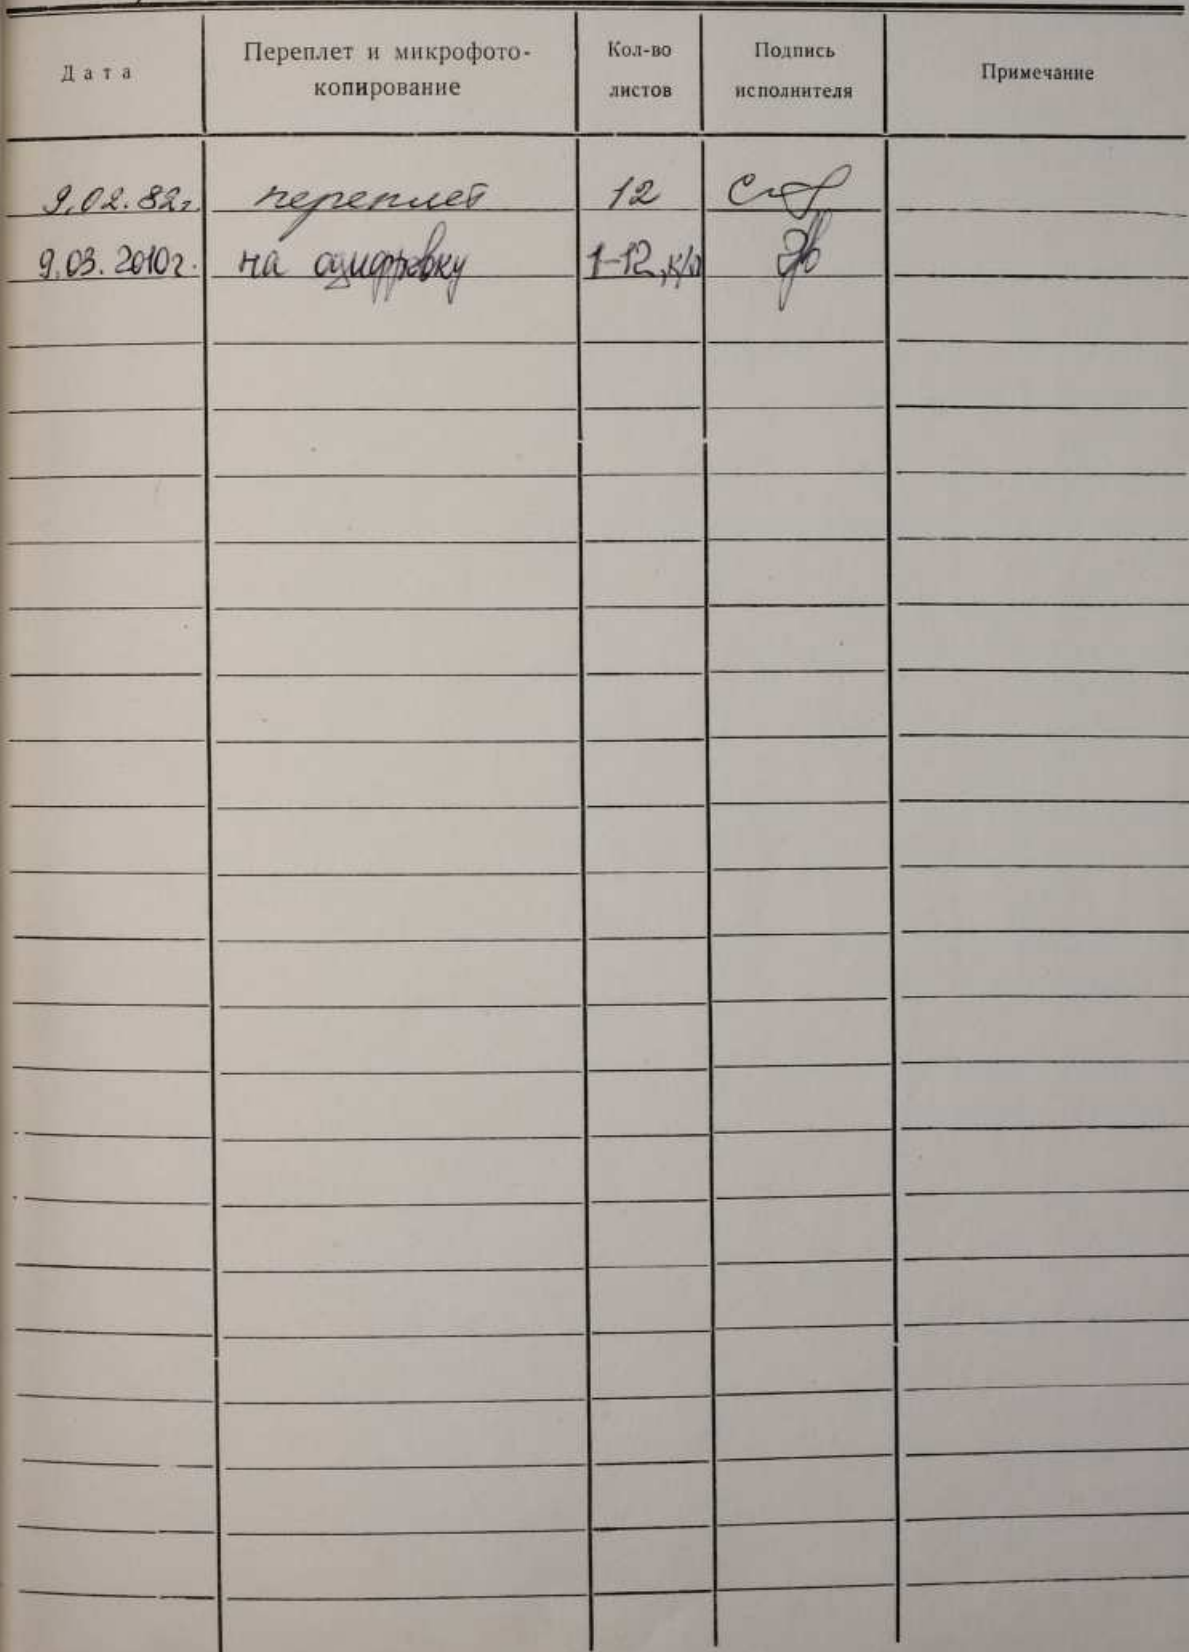 Дата
Переплет и микрофото-
копирование
Кол-во
листов
Подпись
исполнителя
Примечание
9.02.82г. переплет 12
9.03.2010г. на оцифровку 1-12,